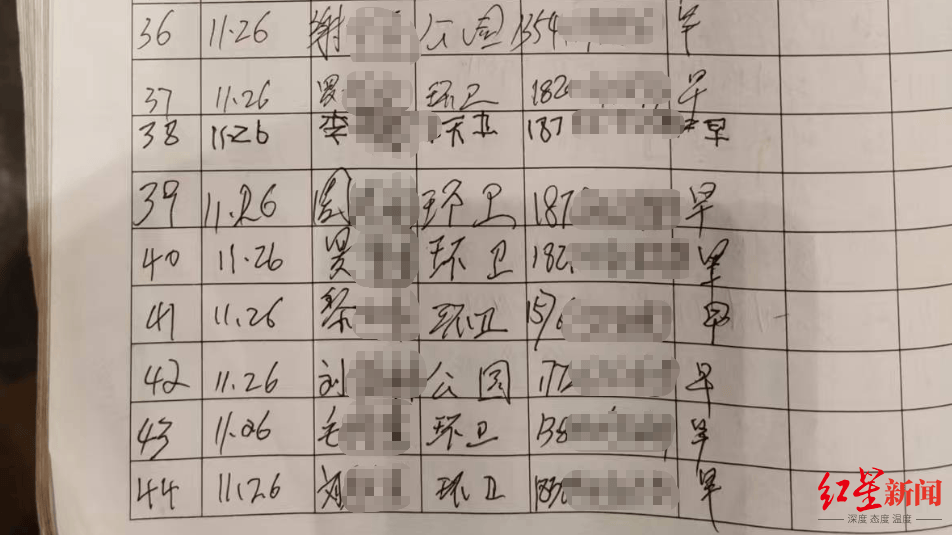 36 11.26 谢 公园 1354 早
37 11.26 罗 环卫 182 早
38 11.26 李 环卫 187 早
39 11.26 周 环卫 187 早
40 11.26 吴 环卫 182 早
41 11.26 黎 环卫 157 早
42 11.26 刘 公园 177 早
43 11.26 毛 环卫 138 早
44 11.26 刘 环卫 183 早
红星新闻
深度 态度 温度